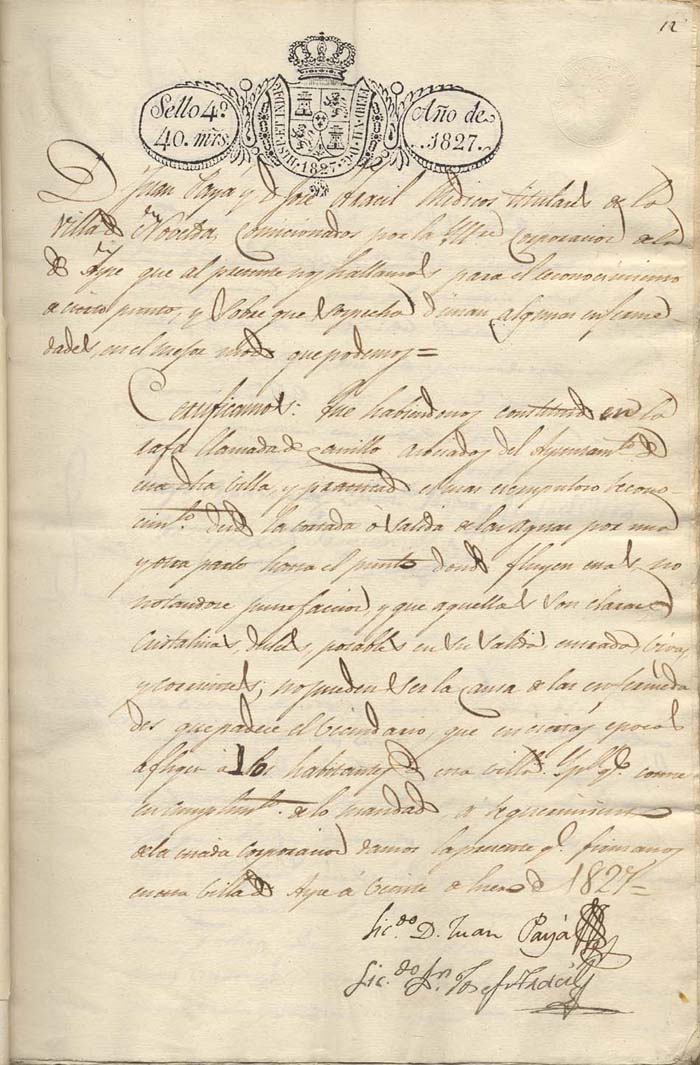 12
Sello 4º
40. mrs.
HISP. ET IND. REX. FERD. VII. D. G. 1827.
Año de
1827.
D.n Juan Paya y D.n José Aracil Medicos titulares de la
Villa de Novelda, comicionados por la Ill.re Corporacion de la
de Aspe que al presente nos hallamos para el reconocimiento
a cierto punto, y sobre que sospecha dimanan algunas enferme-
dades, en el mejor modo que podemos =
Certificamos: Que habiendonos constituido en la
rafa llamada de asociados del Ayuntam.to de
esta dha Villa, y practicado el mas escrupuloso recono-
cim.to desde la entrada ó salida de las Aguas por una
y otra parte hasta el punto donde fluyen estas, no
notandose putrefaccion, y que aquellas son claras,
cristalinas, dulces, potables en su salida, entrada,
y corrientes; no pueden ser la causa de las enfermeda
des que padece el Vecindario, que en ciertas epocas
afligen á los habitantes de esta villa. Y p.a q.e conste
en cumplim.to de lo mandado a requerimiento
de la citada Corporacion damos la presente q.e firmamos
en esta Villa de Aspe á Veinte de Enero de 1827=
Lic.do D. Juan Payá
Lic.do D.n Josef Aracil